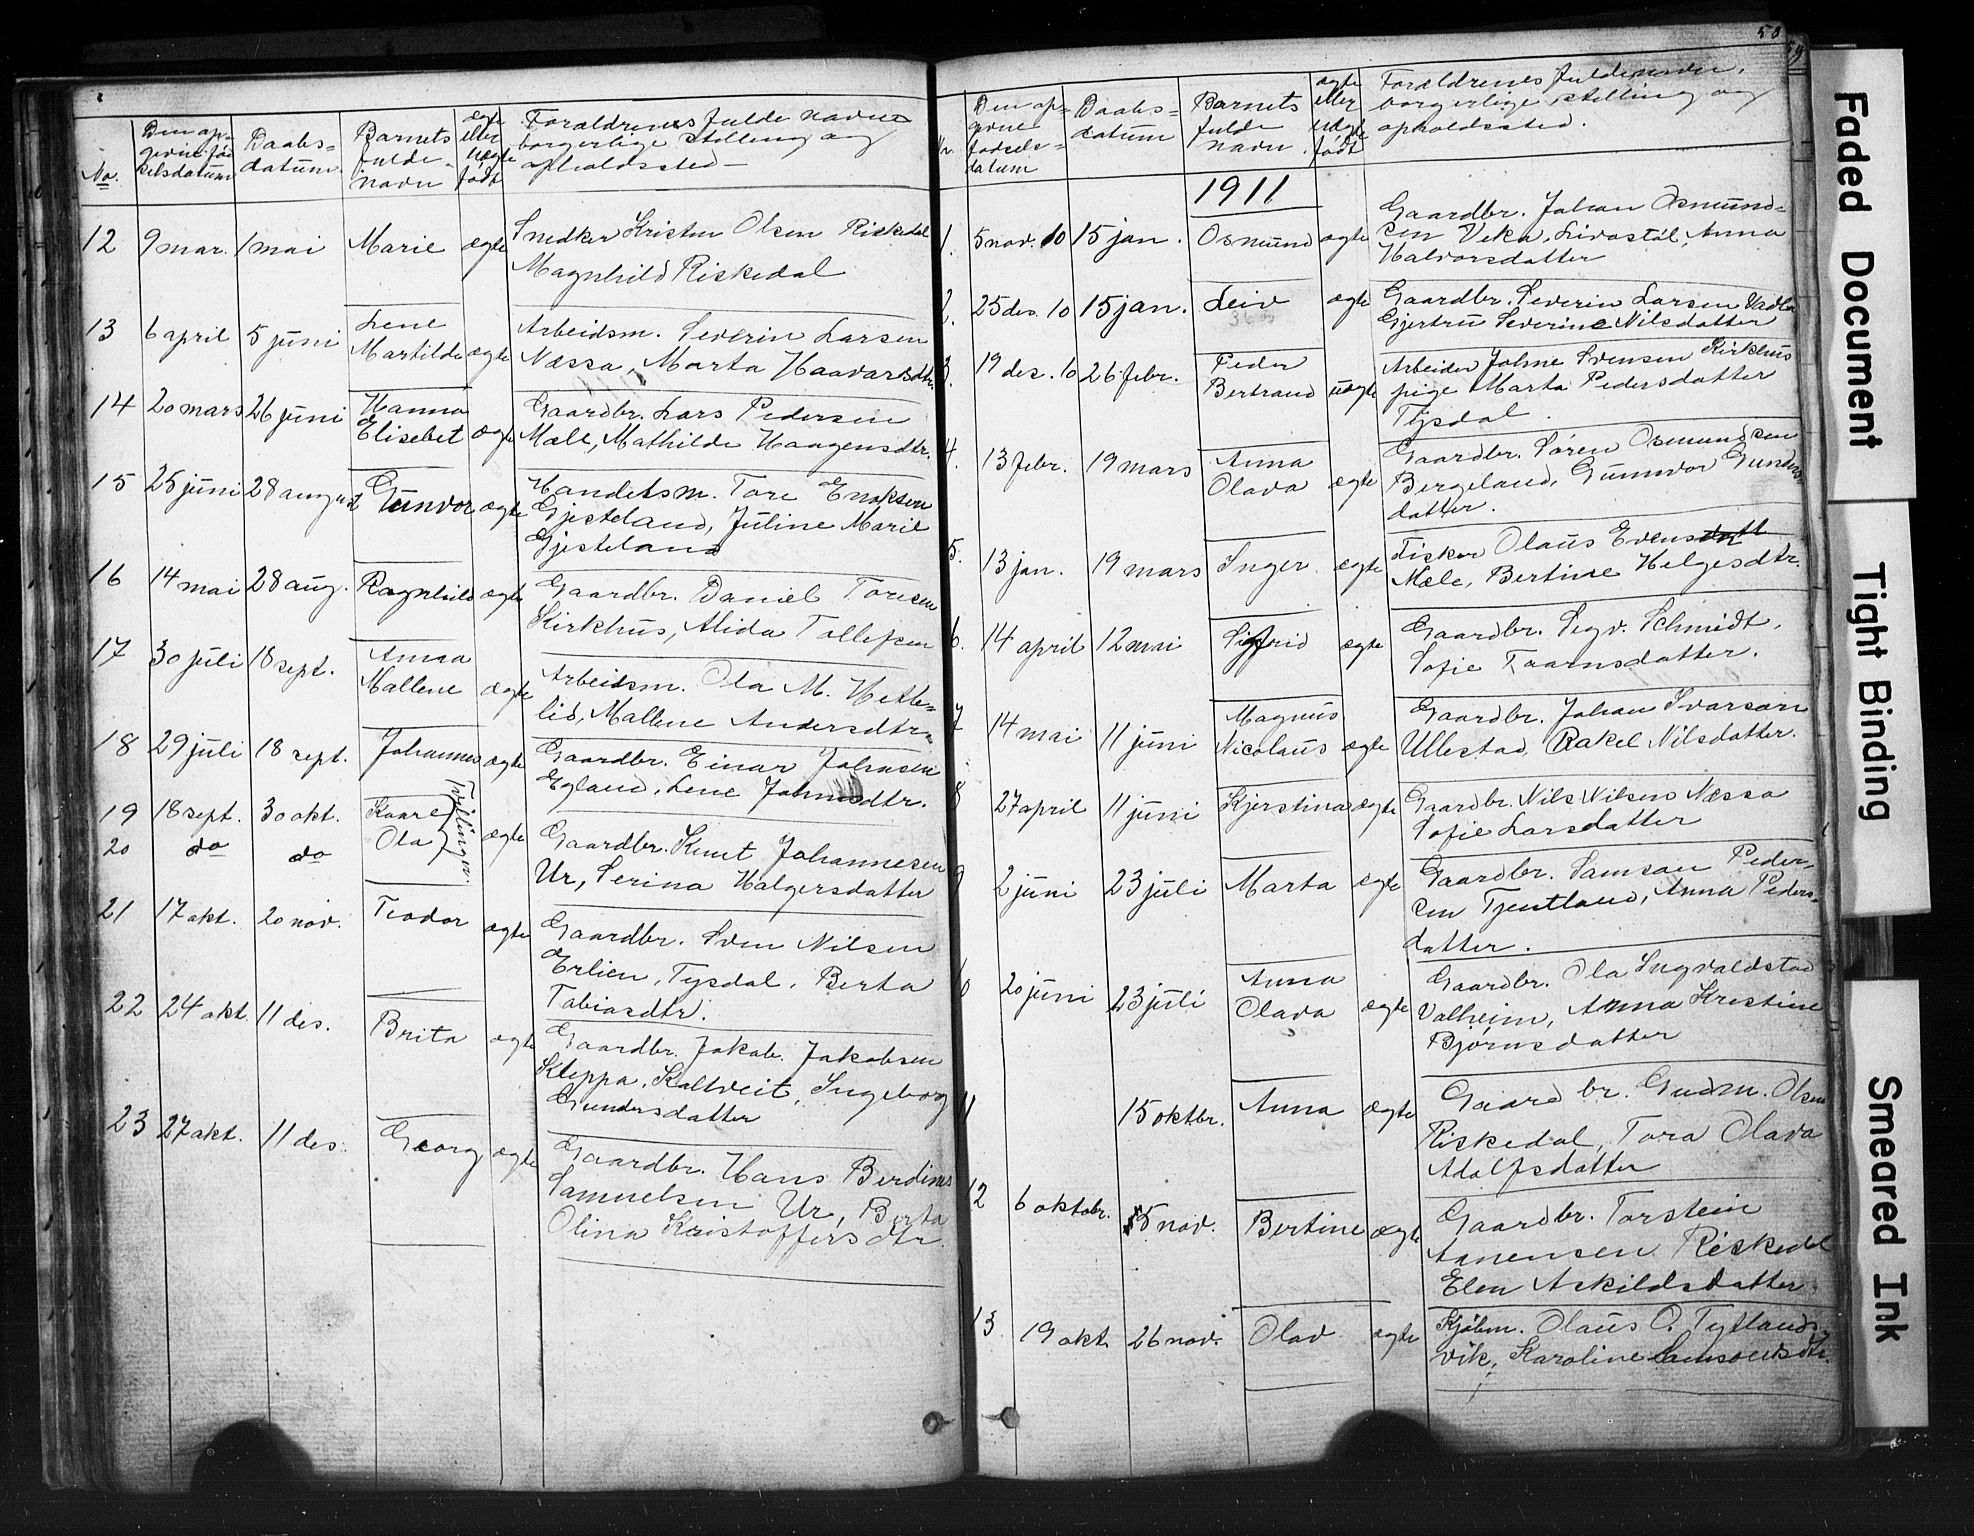 No.
Den op-
givne fød-
selsdatum
Daabs-
datum.
Barnets
fulde
navn
ægte
eller
uægte
født
Forældrenes fulde navne
borgerlige stilling og
opholdssted
12 9 mar. 1 mai Marie ægte Snedker Kristen Olsen Riskedal
Magnhild Riskedal
13 6 april 5 juni Lene
Martilde ægte Arbeidsm. Severin Larsen
Næssa, Marta Haavarsdtr.
14 20 mars 26 juni Hanna
Elisebet ægte Gaardbr. Lars Pedersen
Mæle, Mathilde Haagensdtr.
15 25 juni 28 august Gunvor ægte Handelsm. Tore Enoksen
Gjesteland, Juline Marie
Gjesteland
16 14 mai 28 aug. Ragnhild ægte Gaardbr. Daniel Toresen
Kirkhus, Alida Tollefsen
17 30 juli 18 sept. Anna
Mallene ægte Arbeidsm. Ola M. Hetle-
lid, Mallene Andersdtr.
18 29 juli 18 sept. Johannes ægte Gaardbr. Einar Johnsen
Egland, Lene Johnsdtr.
19 18 sept. 30 okt. Kaare
20 do do Ola Tvilinger. ægte Gaardbr. Knut Johannesen
Ur, Serina Halgersdatter
21 17 okt. 20 nov. Teodor ægte Gaardbr. Sven Nilsen
Erlien, Tysdal, Berta
Tobiasdtr.
22 24 okt. 11 des. Brita ægte Gaardbr. Jakob Jakobsen
Kleppa, Kaltveit, Ingeborg
Gundersdatter
23 27 okt. 11 des. Georg ægte Gaardbr. Hans Berdines
Samuelsen Ur, Berta
Olina Kristoffersdtr.
50
Nr.
Den op-
givne
fødsels-
datum
Daabs-
datum
Barnets
fulde
navn
ægte
eller
uægte
født
Forældrenes fulde navn,
borgerlige stilling og
opholdssted.
1911
1. 5 nov. 10 15 jan. Osmund ægte Gaardbr. Johan Osmund-
sen Veka, Livastøl, Anna
Halvorsdatter
2. 25 des. 10 15 jan. Leiv ægte Gaardbr. Severin Larsen Vadla
Gjertru Severine Nilsdatter
3. 19 des. 10 26 febr. Peder
Bertrand uægte Arbeider Johne Svensen Kirkhus
pige Marta Pedersdatter
Tysdal.
4. 13 febr. 19 mars Anna
Olava ægte Gaardbr. Søren Osmundsen
Bergeland, Gunnvor Gunders-
datter.
5. 13 jan. 19 mars Inger ægte Fisker Olaus Evensdatt
Mæle, Bertine Helgesdtr.
6. 14 april 12 mai Sigfrid ægte Gaardbr. Sigv. Schmidt,
Sofie Taarnsdatter.
7 14 mai 11 juni Magnus
Nicolaus ægte Gaardbr. Johan Ivarsøn
Ullestad, Rakel Nilsdatter.
8 27 april 11 juni Kjerstina ægte Gaardbr. Nils Nilsen Næssa
Sofie Larsdatter
9 2 juni 23 juli Marta ægte Gaardbr. Samson Peder-
sen Tjentland, Anna Peders-
datter.
20 juni 23 juli Anna
Olava ægte Gaardbr. Ola Ingvaldstad
Valheim, Anna Kristine
Bjørnsdatter
11 15 oktbr. Anna ægte Gaardbr. Gudm. Olsen
Riskedal, Tora Olava
Adolfsdatter
12 6 oktobr. 5 nov. Bertine ægte Gaardbr. Torstein
Aanensen Riskedal
Elen Askildsdatter
13. 19 okt. 26 nov. Olav ægte Kjøbm. Olaus O. Tytlands-
vik, Karoline Samsonsdtr.
Faded Document
Tight Binding
Smeared Ink